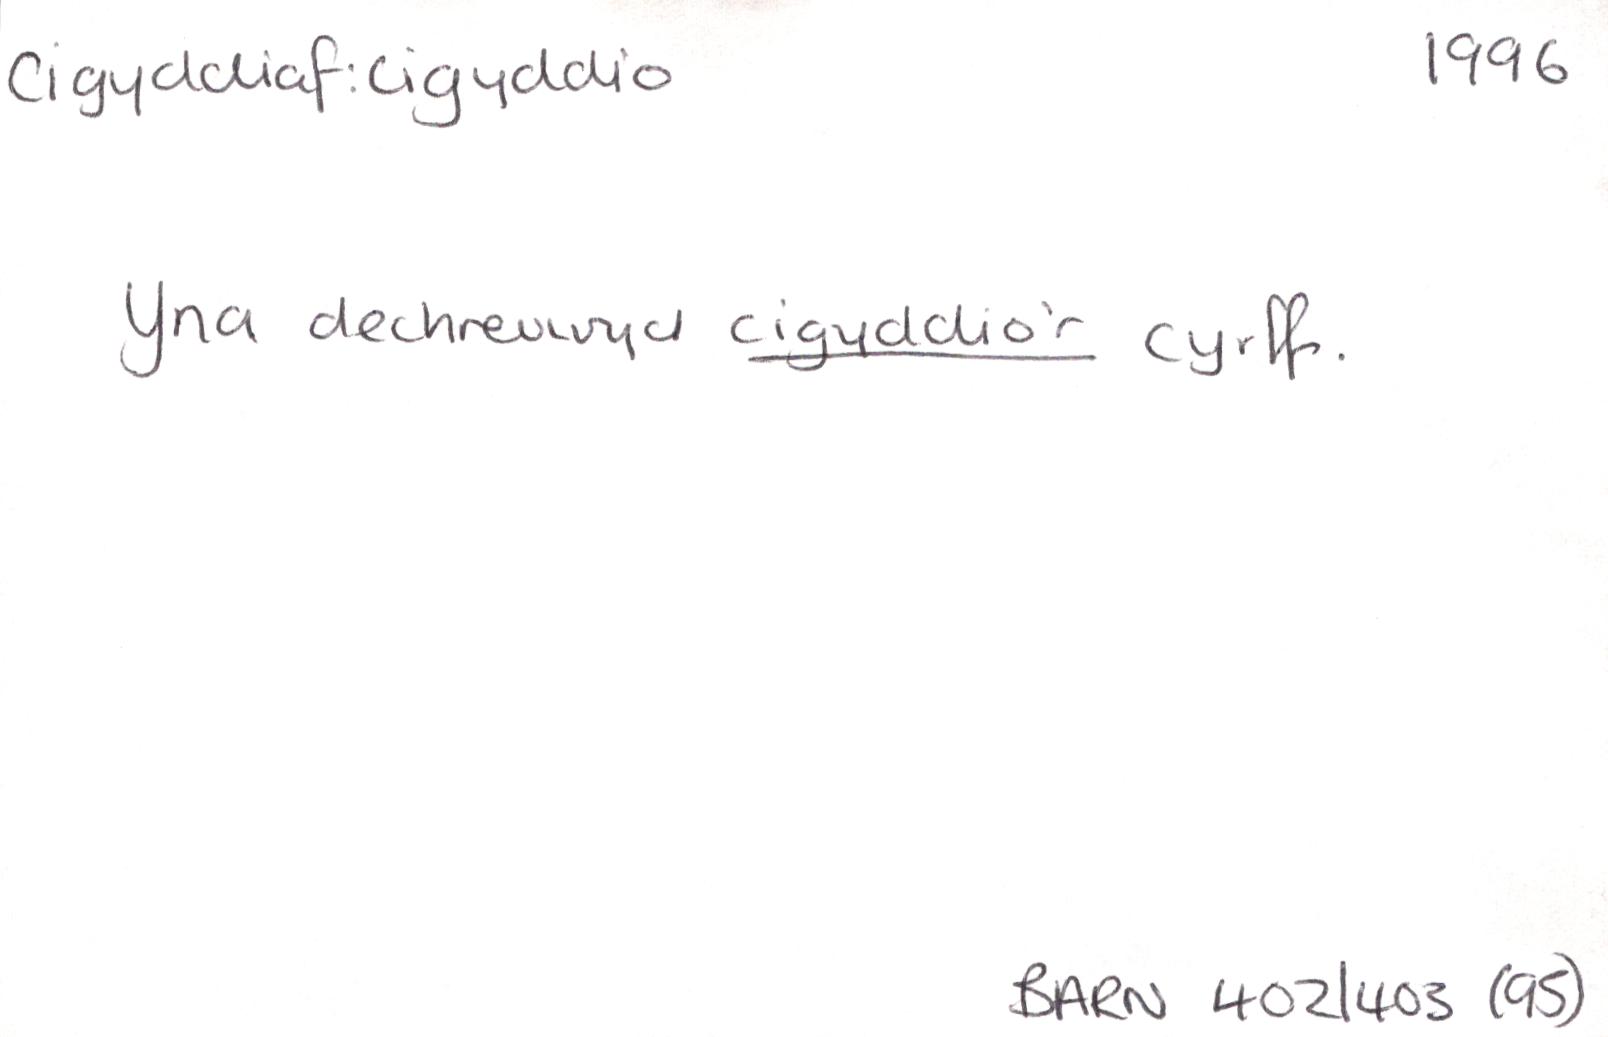 Cigyddiaf: cigyddio 1996
Yna dechreuwyd cigyddio'r cyrff.
BARN 402/403 (95)